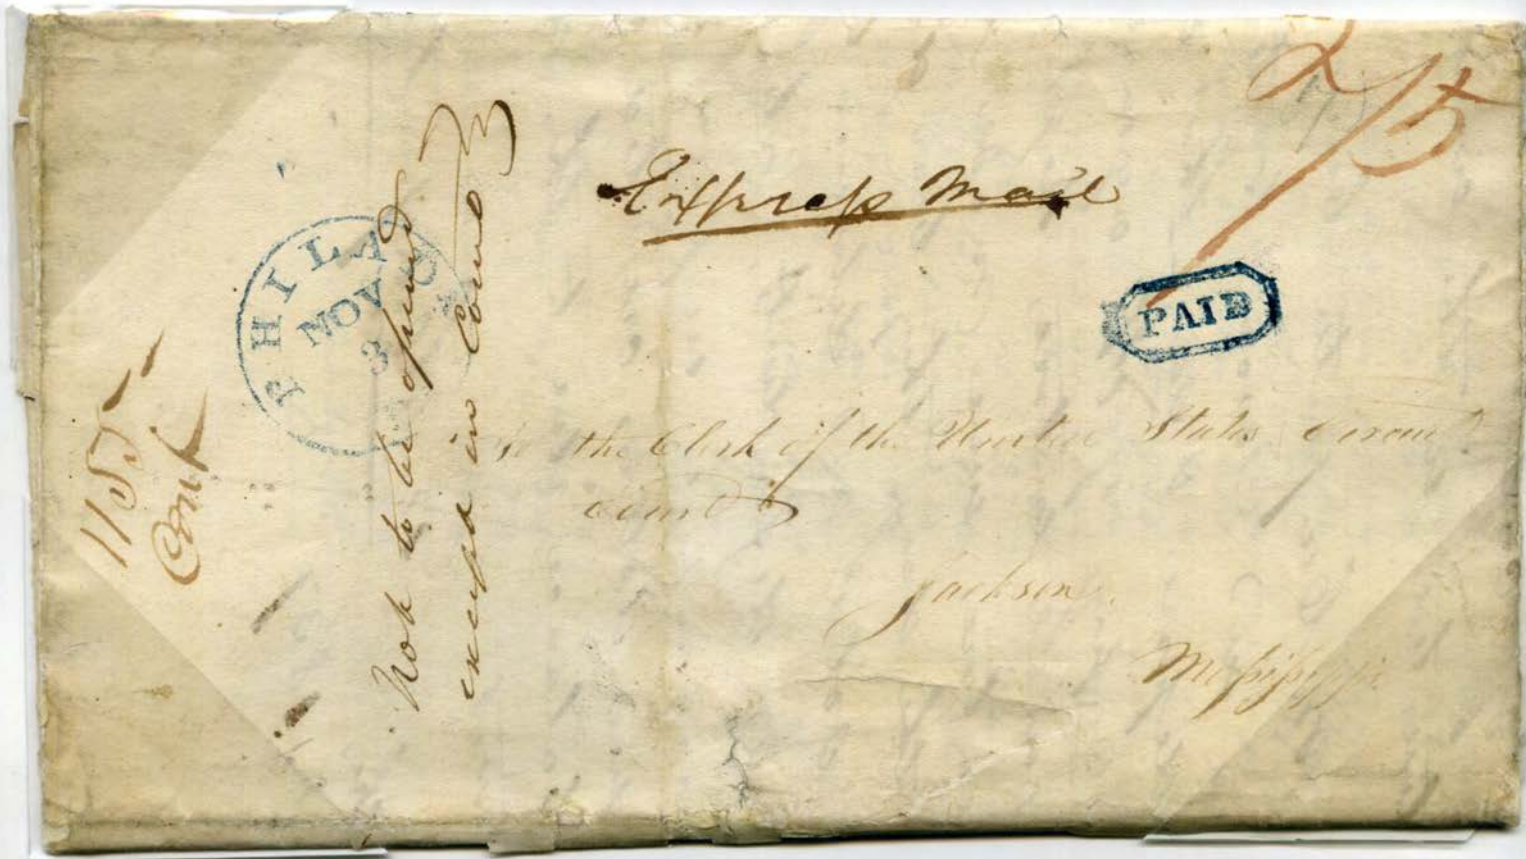 2/5
Express Mail
PHILA
NOV
3
PAID
Not to be opened
except in Court
1155
Cont
To the Clerk of the United States Circuit
Court
Jackson
Mississippi